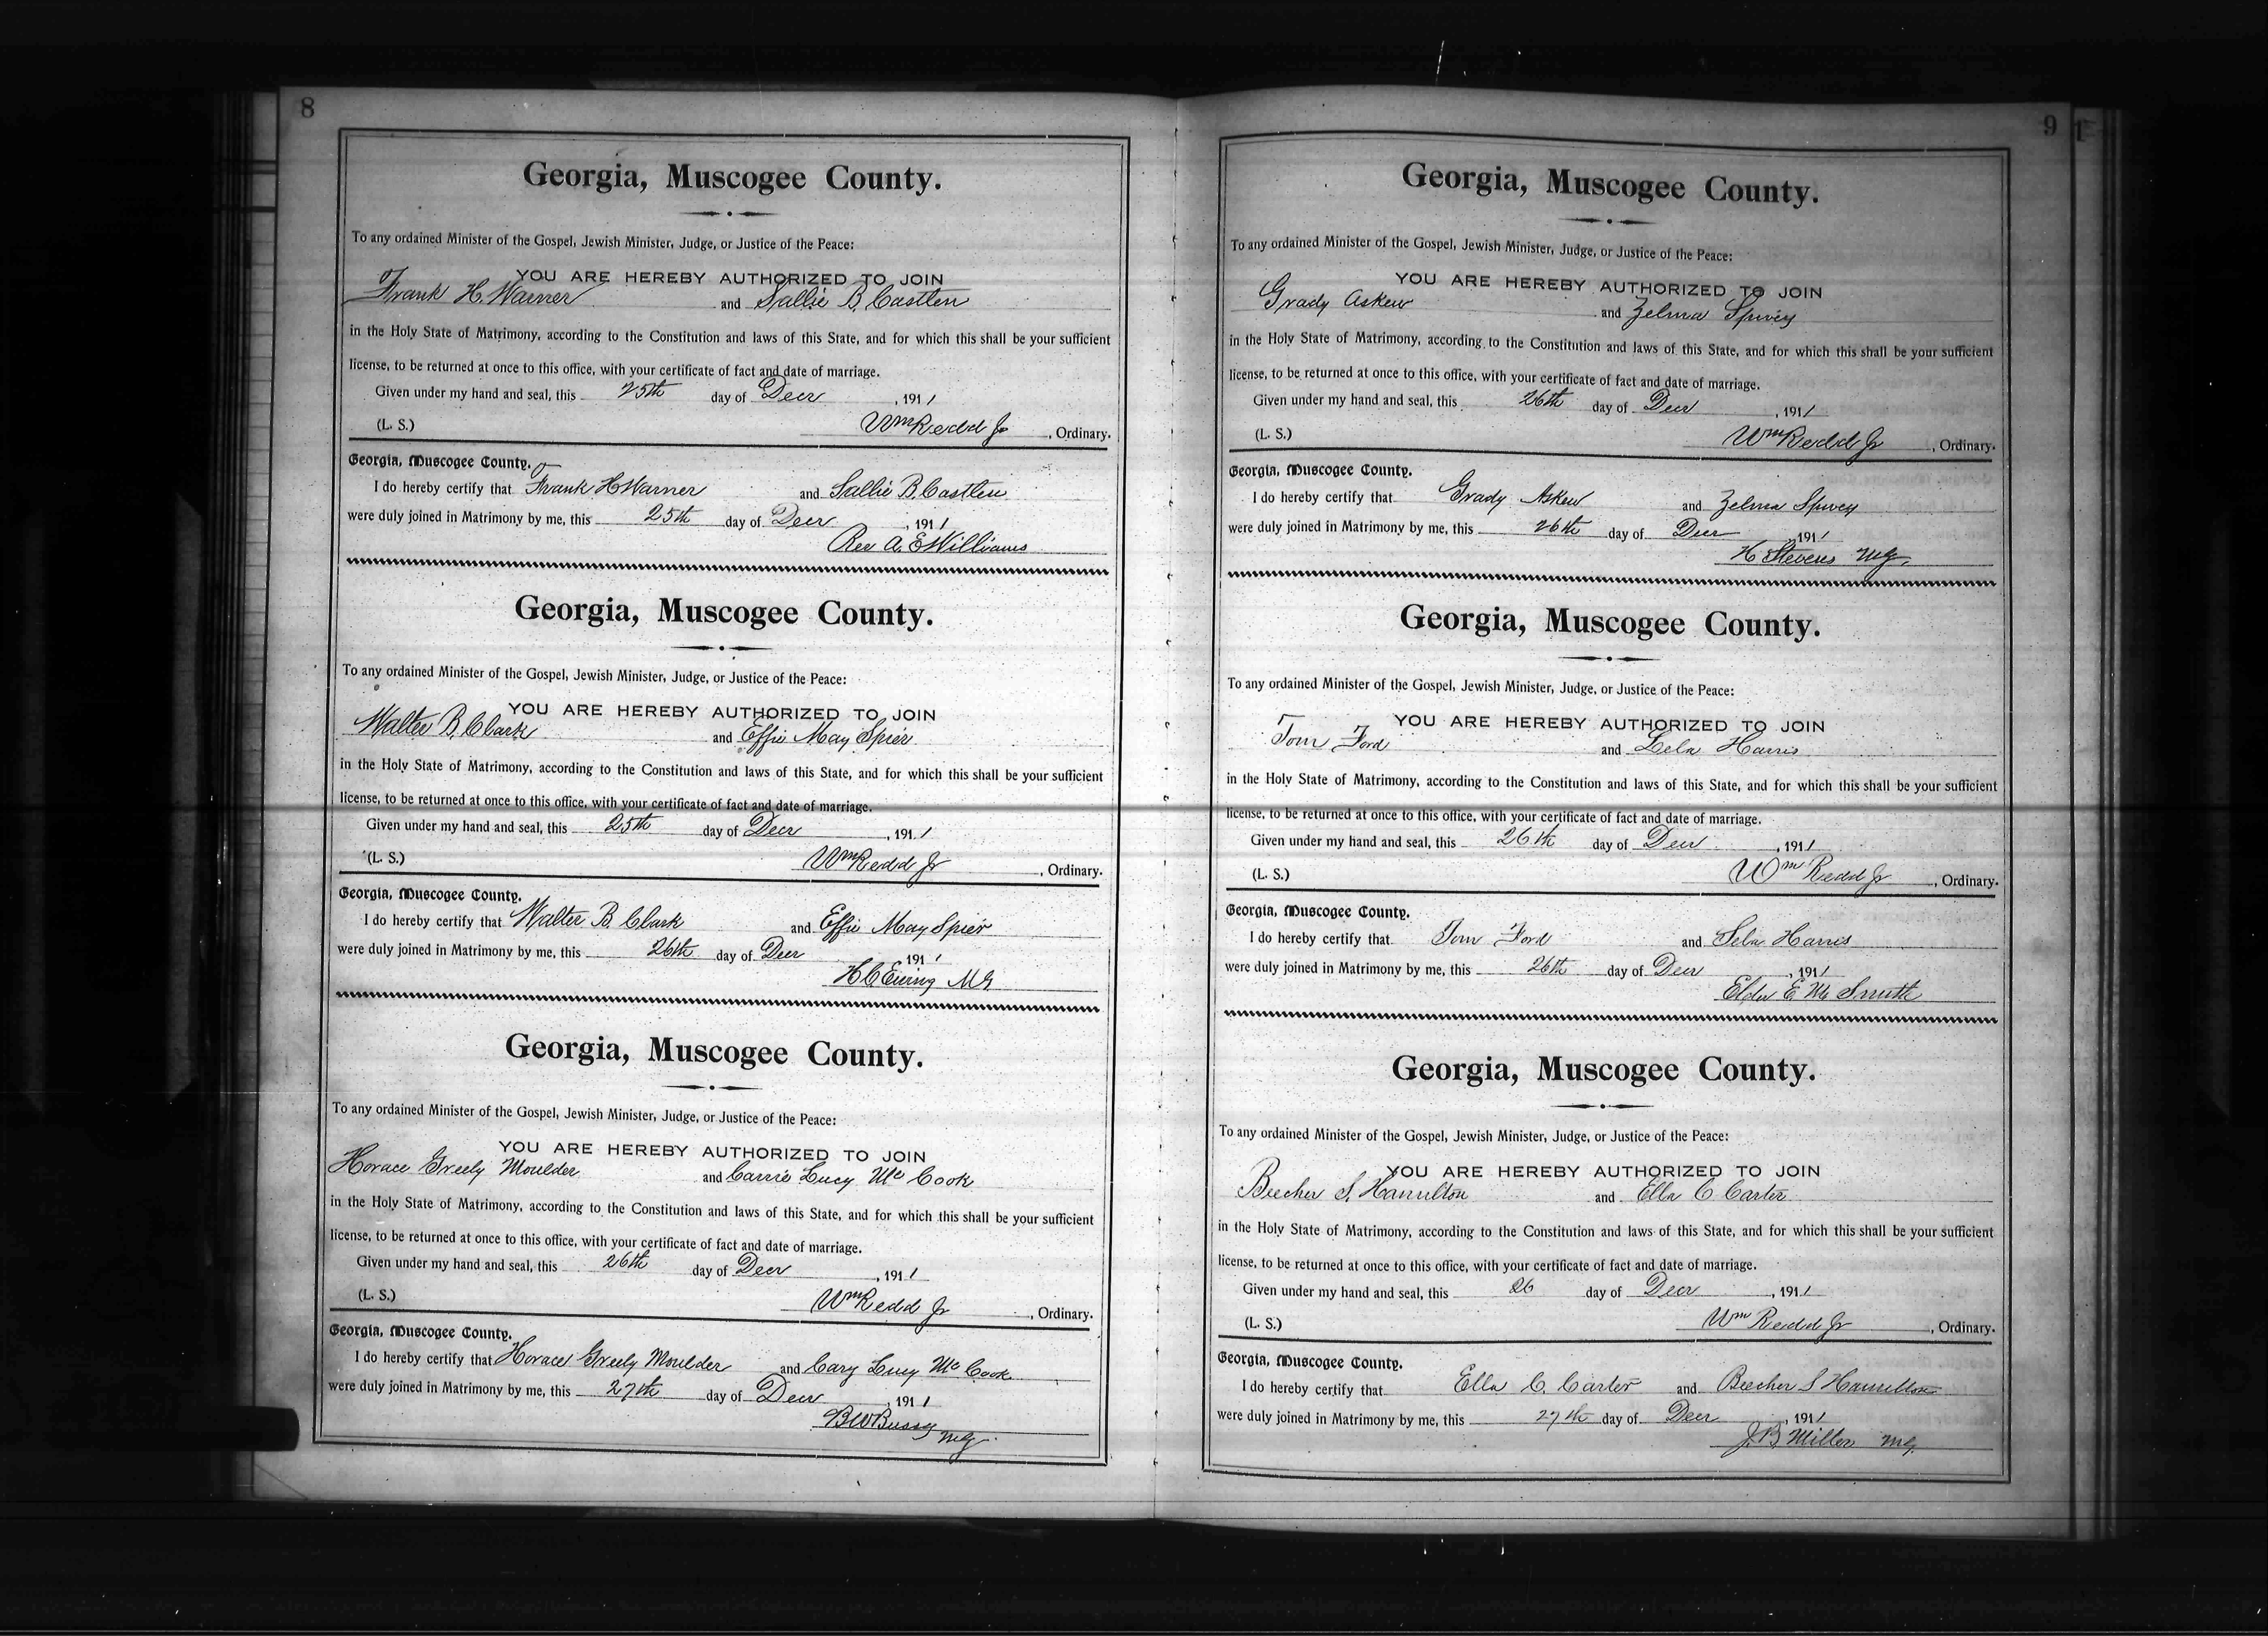 8
Georgia, Muscogee County.
To any ordained Minister of the Gospel, Jewish Minister, Judge, or Justice of the Peace:
YOU ARE HEREBY AUTHORIZED TO JOIN
Frank H. Warner and Sallie B. Castlen
in the Holy State of Matrimony, according to the Constitution and laws of this State, and for which this shall be your sufficient
license, to be returned at once to this office, with your certificate of fact and date of marriage.
Given under my hand and seal, this 25th day of Decr , 1911
(L. S.) Wm Redd Jr , Ordinary.
Georgia, Muscogee County.
I do hereby certify that Frank H Warner and Sallie B. Castlen
were duly joined in Matrimony by me, this 25th day of Decr , 1911
Rev A. E Williams
Georgia, Muscogee County.
To any ordained Minister of the Gospel, Jewish Minister, Judge, or Justice of the Peace:
YOU ARE HEREBY AUTHORIZED TO JOIN
Walter B. Clark and Effie May Spier
in the Holy State of Matrimony, according to the Constitution and laws of this State, and for which this shall be your sufficient
license, to be returned at once to this office, with your certificate of fact and date of marriage.
Given under my hand and seal, this 25th day of Decr , 1911
(L. S.) Wm Redd Jr , Ordinary.
Georgia, Muscogee County.
I do hereby certify that Walter B. Clark and Effie May Spier
were duly joined in Matrimony by me, this 26th day of Decr , 1911
H C Ewing MG
Georgia, Muscogee County.
To any ordained Minister of the Gospel, Jewish Minister, Judge, or Justice of the Peace:
YOU ARE HEREBY AUTHORIZED TO JOIN
Horace Greely Moulder and Carrie Lucy Mc Cook
in the Holy State of Matrimony, according to the Constitution and laws of this State, and for which this shall be your sufficient
license, to be returned at once to this office, with your certificate of fact and date of marriage.
Given under my hand and seal, this 26th day of Decr , 1911
(L. S.) Wm Redd Jr , Ordinary.
Georgia, Muscogee County.
I do hereby certify that Horace Greely Moulder and Cary Lucy Mc Cook
were duly joined in Matrimony by me, this 27th day of Decr , 1911
B W Bussey
MG
9
Georgia, Muscogee County.
To any ordained Minister of the Gospel, Jewish Minister, Judge, or Justice of the Peace:
YOU ARE HEREBY AUTHORIZED TO JOIN
Grady Askew and Zelma Spivey
in the Holy State of Matrimony, according to the Constitution and laws of this State, and for which this shall be your sufficient
license, to be returned at once to this office, with your certificate of fact and date of marriage.
Given under my hand and seal, this 26th day of Decr , 1911
(L. S.) Wm Redd Jr , Ordinary.
Georgia, Muscogee County.
I do hereby certify that Grady Askew and Zelma Spivey
were duly joined in Matrimony by me, this 26th day of Decr , 1911
H Stevens MG.
Georgia, Muscogee County.
To any ordained Minister of the Gospel, Jewish Minister, Judge, or Justice of the Peace:
YOU ARE HEREBY AUTHORIZED TO JOIN
Tom Ford and Lela Harris
in the Holy State of Matrimony, according to the Constitution and laws of this State, and for which this shall be your sufficient
license, to be returned at once to this office, with your certificate of fact and date of marriage.
Given under my hand and seal, this 26th day of Decr , 1911
(L. S.) Wm Redd Jr , Ordinary.
Georgia, Muscogee County.
I do hereby certify that Tom Ford and Lela Harris
were duly joined in Matrimony by me, this 26th day of Decr , 1911
Elder E. M. Smith
Georgia, Muscogee County.
To any ordained Minister of the Gospel, Jewish Minister, Judge, or Justice of the Peace:
YOU ARE HEREBY AUTHORIZED TO JOIN
Beecher S. Hamilton and Ella C Carter
in the Holy State of Matrimony, according to the Constitution and laws of this State, and for which this shall be your sufficient
license, to be returned at once to this office, with your certificate of fact and date of marriage.
Given under my hand and seal, this 26 day of Decr , 1911
(L. S.) Wm Redd Jr , Ordinary.
Georgia, Muscogee County.
I do hereby certify that Ella C. Carter and Beecher S Hamilton
were duly joined in Matrimony by me, this 27th day of Decr , 1911
J. B Miller MG.